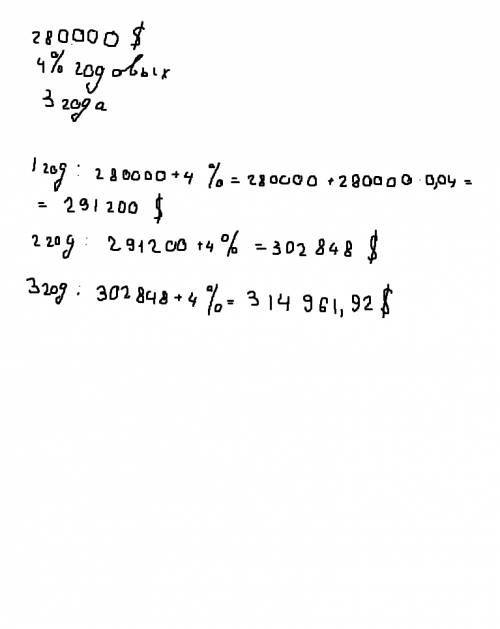 280000 $
4% годовых
3 года
1 год: 280000 + 4 % = 280000 + 280000 · 0,04 =
= 291200 $
2 год: 291200 + 4% = 302 848 $
3 год: 302848 + 4 % = 314 961,92 $